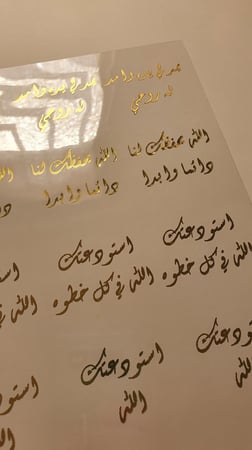 مدلي وامد مدلي وامد
لك روحي لك روحي
الله يحفظك لنا الله يحفظك لنا
دائما وابدا دائما وابدا
استودعتك استودعتك
الله في كل خطوه الله في كل خطوه
استودعتك استودعتك
الله الله